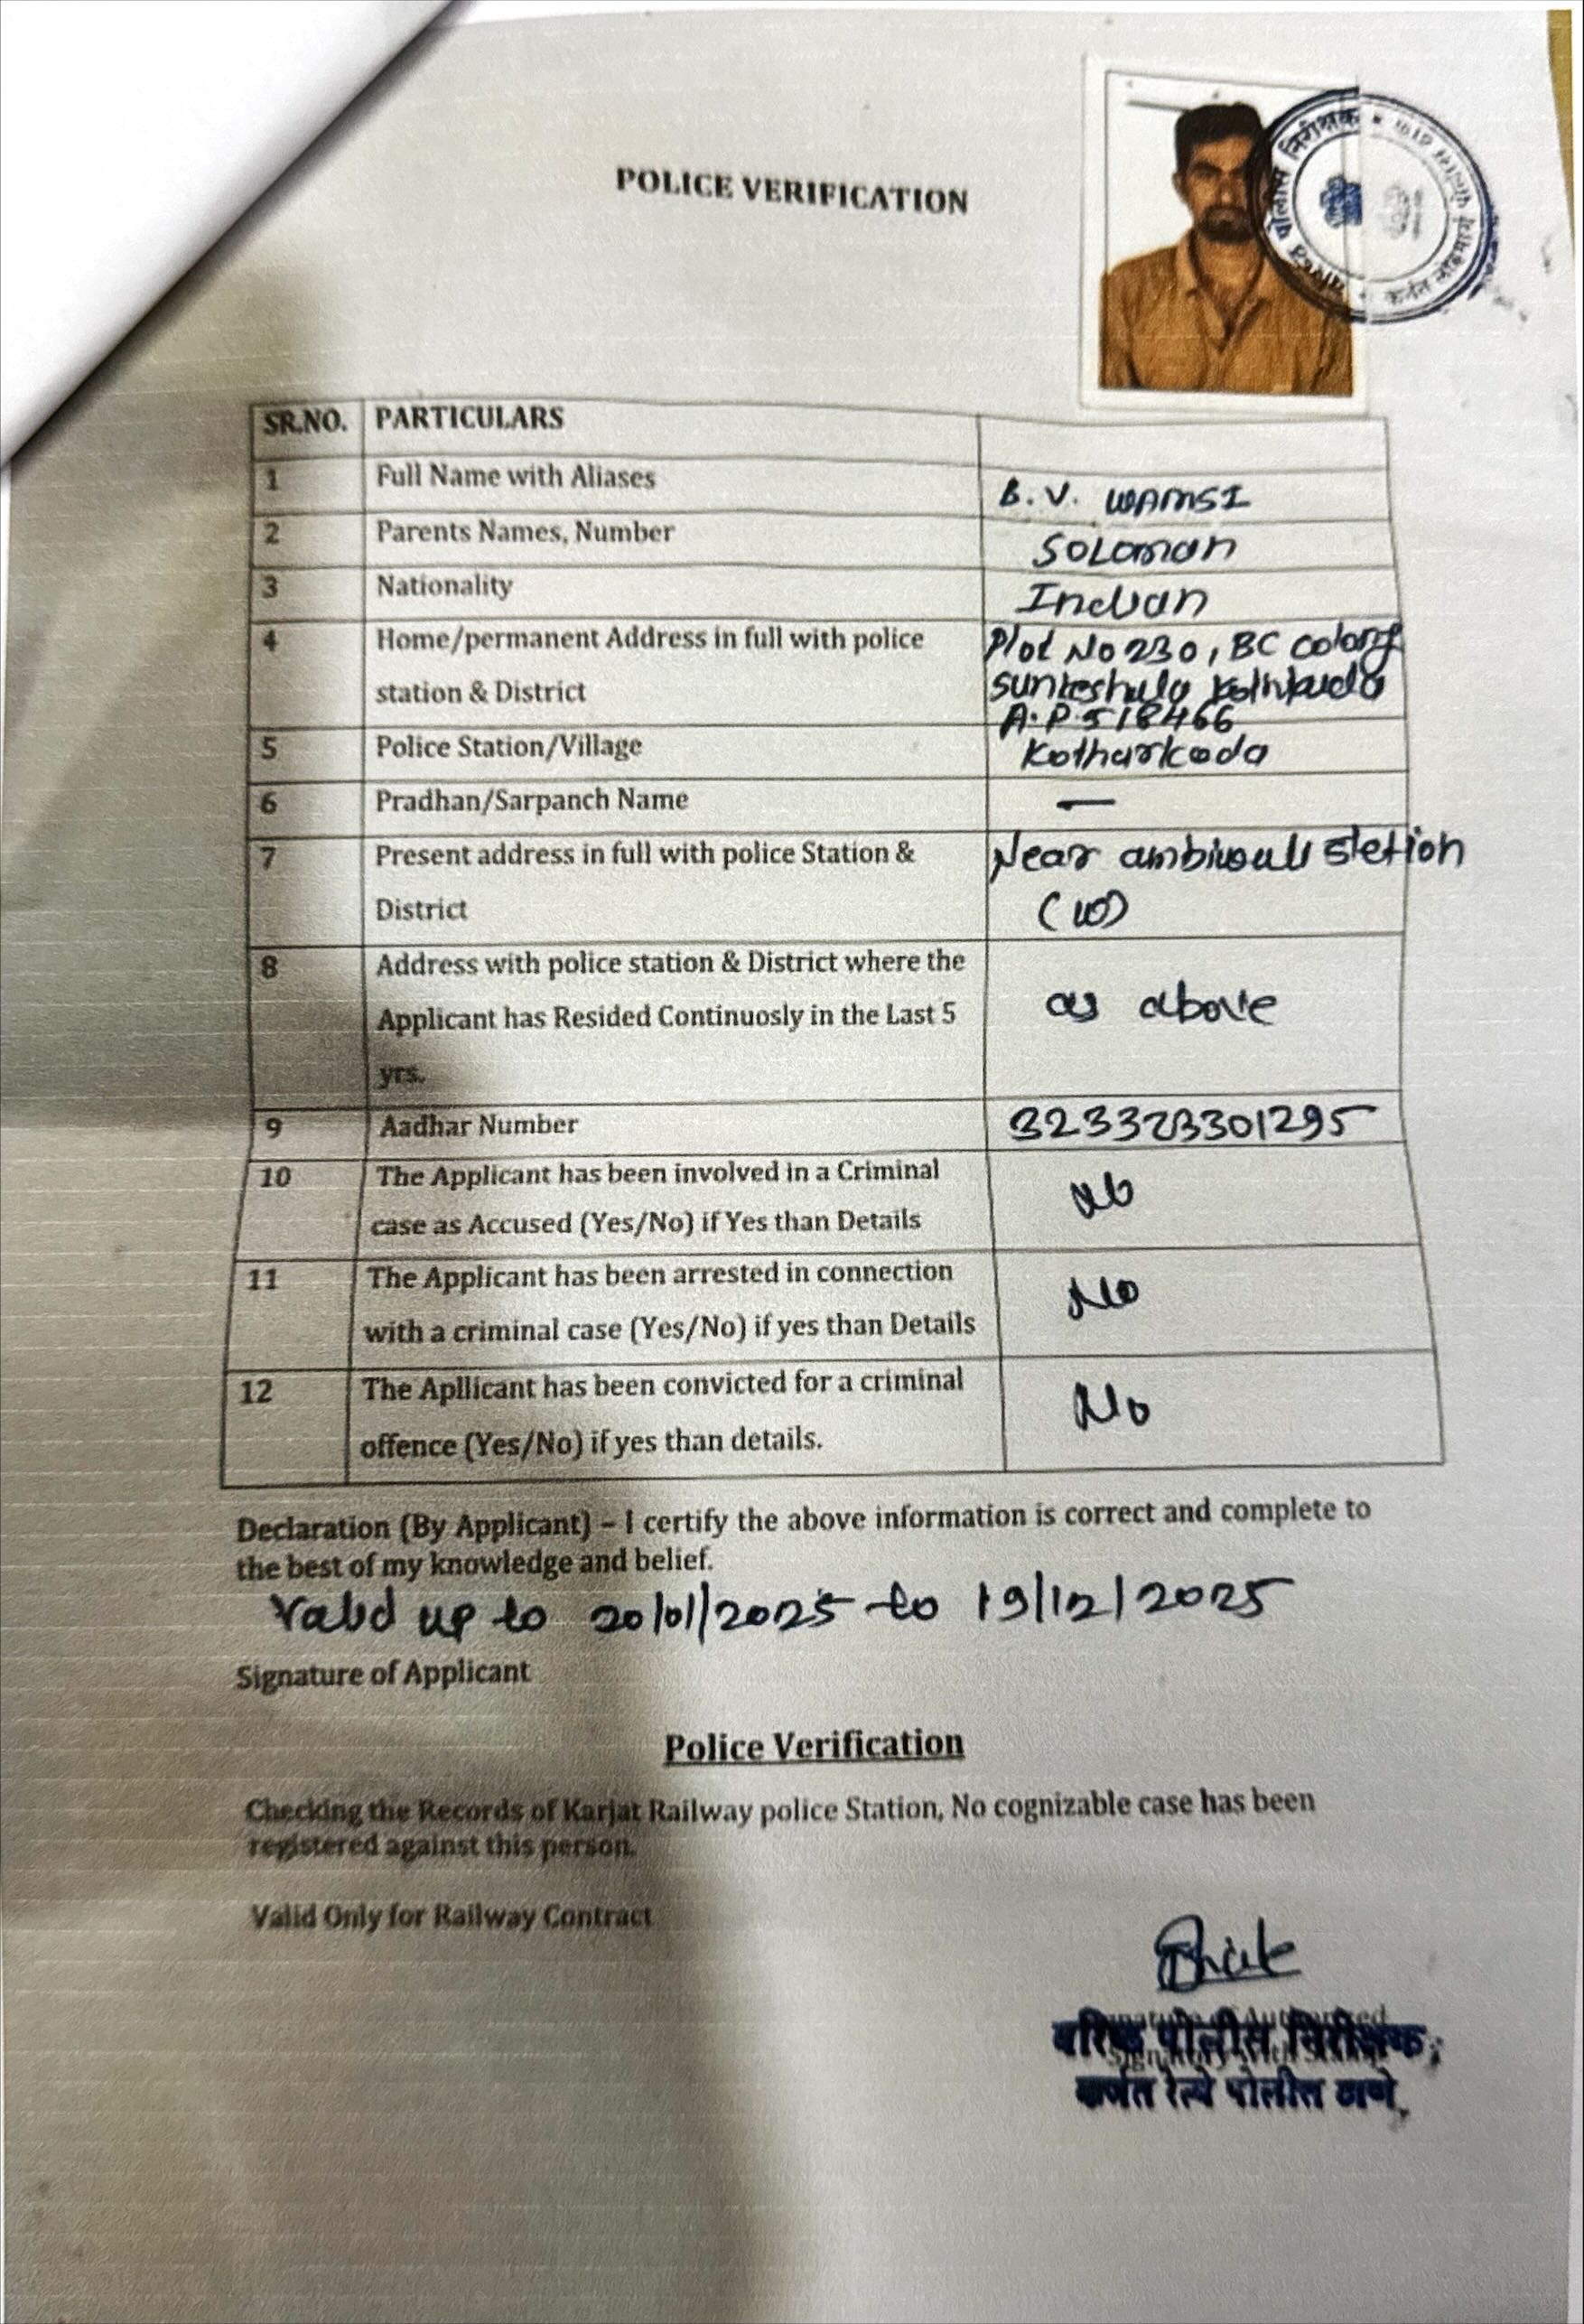 POLICE VERIFICATION
पोलीस निरीक्षक
SR.NO. PARTICULARS
1 Full Name with Aliases B. V. WAMSI
2 Parents Names, Number SOLOMAN
3 Nationality Indian
4 Home/permanent Address in full with police Plot No 230, BC colony
station & District
A.P 518466
5 Police Station/Village Kotharkoda
6 Pradhan/Sarpanch Name —
7 Present address in full with police Station & Near ambivali stetion
District (W)
8 Address with police station & District where the
Applicant has Resided Continuosly in the Last 5 as above
yrs.
9 Aadhar Number 323323301295
10 The Applicant has been involved in a Criminal No
case as Accused (Yes/No) if Yes than Details
11 The Applicant has been arrested in connection No
with a criminal case (Yes/No) if yes than Details
12 The Apllicant has been convicted for a criminal No
offence (Yes/No) if yes than details.
Declaration (By Applicant) – I certify the above information is correct and complete to
the best of my knowledge and belief.
Valid up to 20/01/2025 to 19/12/2025
Signature of Applicant
Police Verification
Checking the Records of Karjat Railway police Station, No cognizable case has been
registered against this person.
Valid Only for Railway Contract
वरिष्ठ पोलीस निरीक्षक,
कर्जत रेल्वे पोलीस ठाणे.